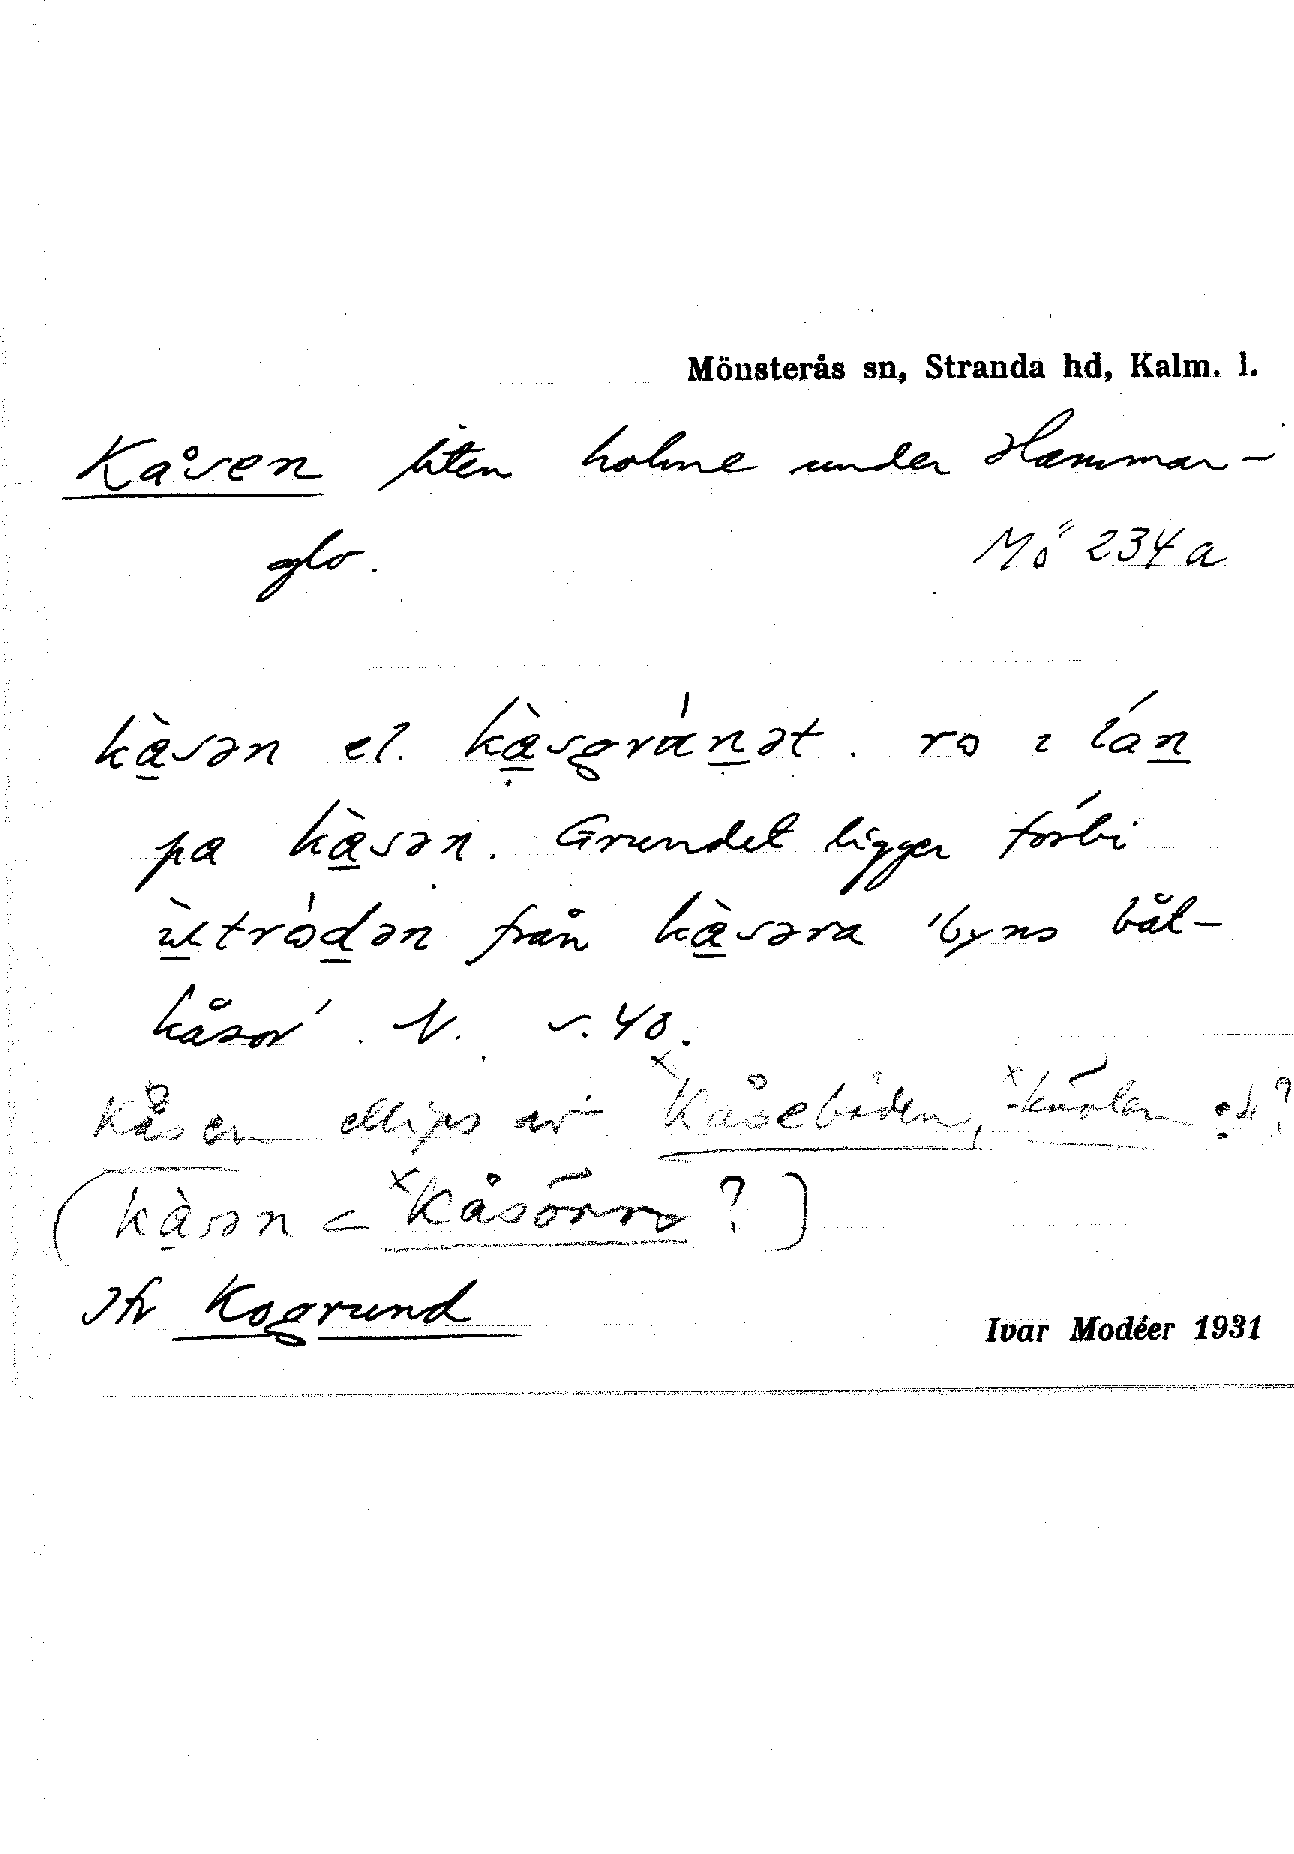 Mönsterås sn, Stranda hd, Kalm. l.
Kåsen liten holme under Hammar-
glo.
Mö 234a
kàsən el. kàsgránət. ro i lán
pa kàsən. Grundet ligger förbi
ùtródən från kàsəra 'byns båt-
kåsor'. N. s. 40.
Kåsen ellips av ˣKåseboden, ˣ-kärlen
(kàsən < ˣKåsörn ?)
Jfr Kogrund
Ivar Modéer 1931